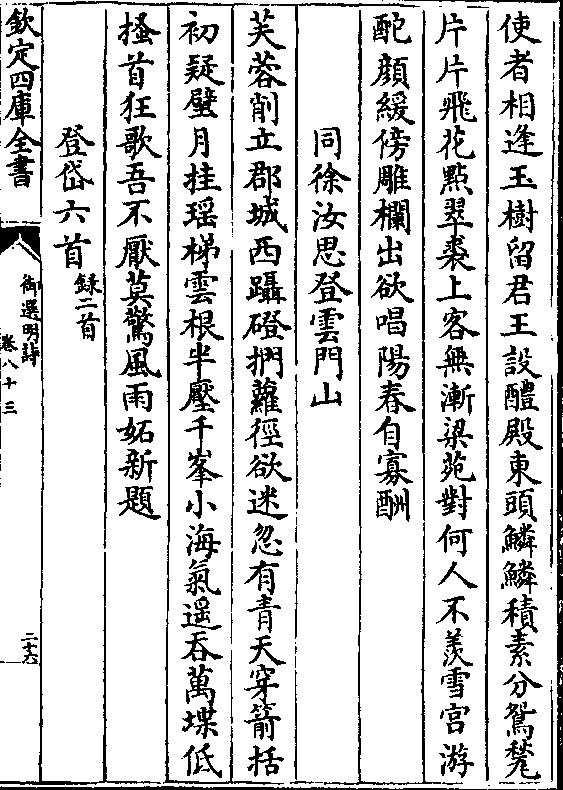 使者相逢玉樹留君王設醴殿東頭鱗鱗積素分鴛甃
片片飛花點翠裘上客無漸梁苑對何人不羨雪宮游
酡顔緩傍雕欄出欲唱陽春自寡酬
同徐汝思登雲門山
芙蓉削立郡城西躡磴捫蘿徑欲迷忽有青天穿箭括
初疑璧月挂瑶梯雲根半壓千峯小海氣遥吞萬堞低
搔首狂歌吾不厭莫驚風雨妬新題
登岱六首錄二首
欽定四庫全書
御選明詩
卷八十三
二十六